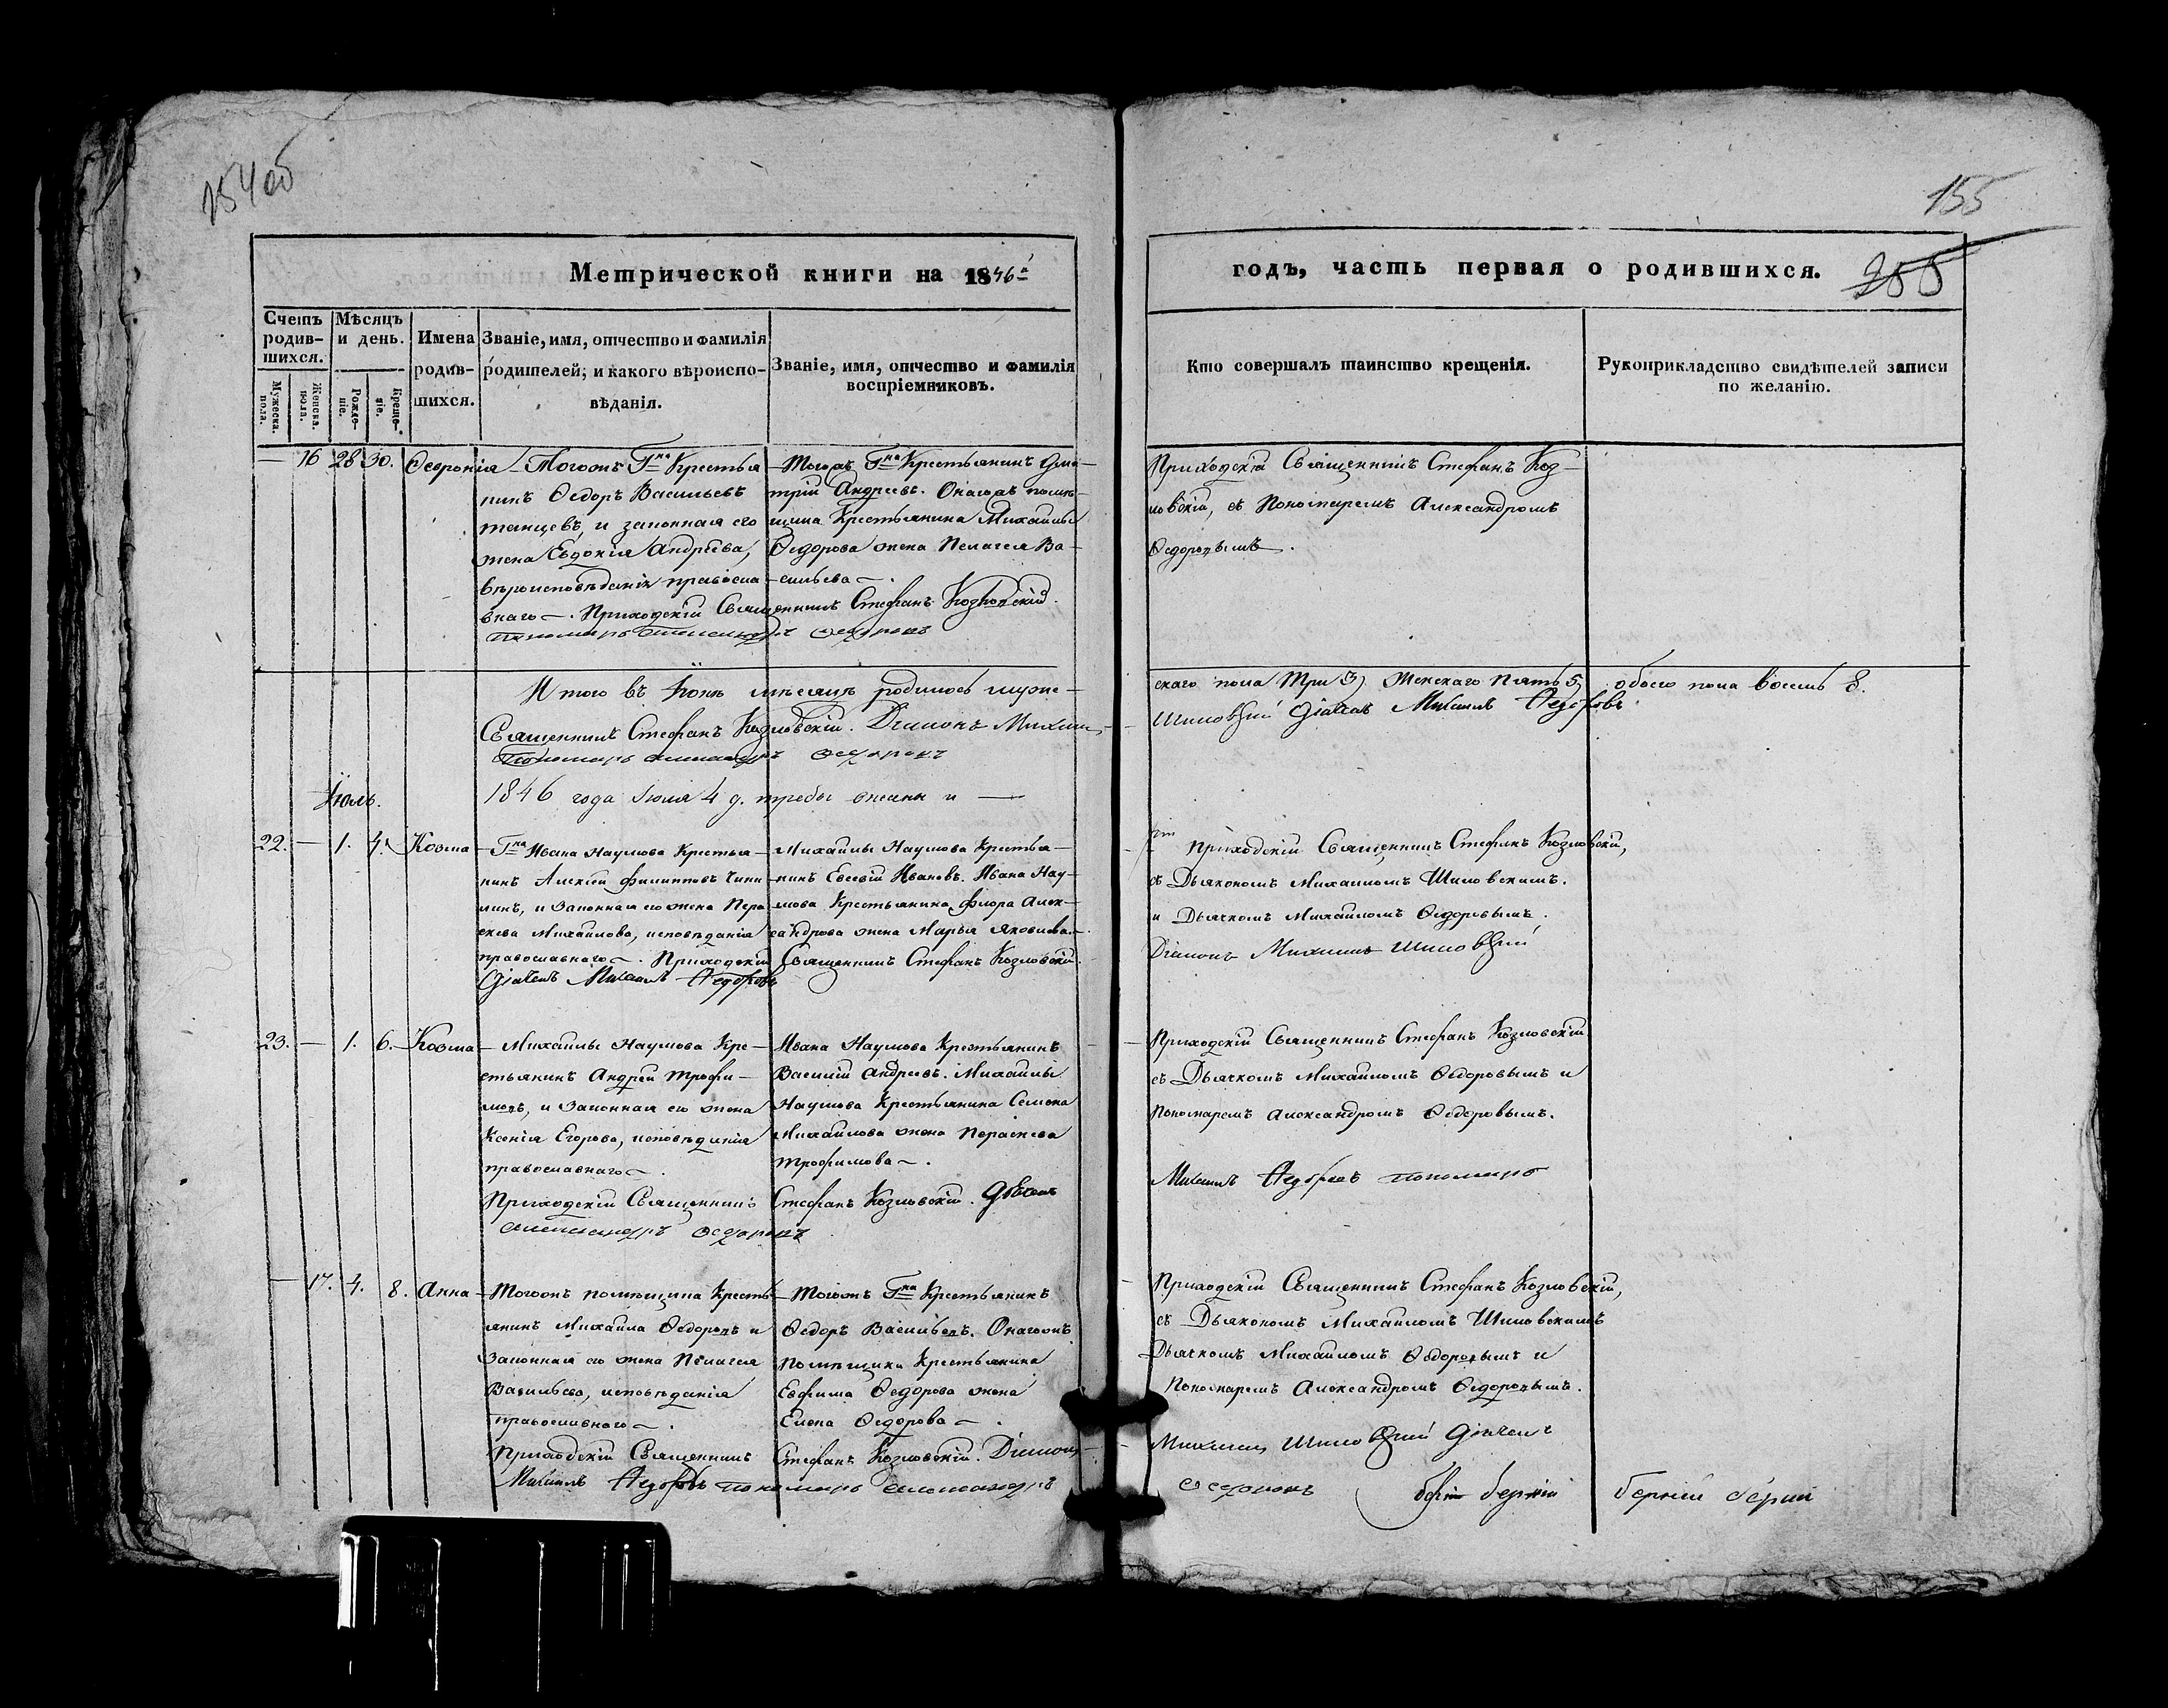 154 об
155
255
Метрической книги на 1846й
годъ, часть первая о родившихся.
Счетъ родив-шихся.
Мѣсяцъ и день.
Имена родив-шихся.
Званіе, имя, отчество и фамилія родителей, и какого вѣроиспо-вѣданія.
Званіе, имя, отчество и фамилія воспріемниковъ.
Кто совершалъ таинство крещенія.
Рукоприкладство свидѣтелей записи по желанію.
Мужеска. пола.
Женска. пола.
Рожде-ніе.
Креще-ніе.
— 16 28 30. Февронія
Тогожъ Гна Крестья
нинъ Ѳедоръ Васильевъ
и законная его
жена Евдокія Андрѣева,
вѣроисповѣданія правосла
внаго —. Приходскій Священникъ Стефанъ Козловскій.
Пономарь Александръ Ѳедоровъ
Тогожъ Гна Крестьянинъ Дми-
трій Андреевъ. Онагожъ помѣ-
щика Крестьянина Михайлы
Ѳедорова жена Пелагея Ва-
сильева —.
Приходскій Священникъ Стефанъ Коз-
ловскій, съ Пономаремъ Александромъ
Ѳедоровымъ.
Итого въ Іюнѣ мѣсяцѣ родилось муже-
скаго пола Три 3) Женскаго Пять 5) обоего пола восемь 8.
Священникъ Стефанъ Козловскій. Діаконъ Михаилъ
Шиловскій Дьячекъ Михаилъ Ѳедоровъ
Пономарь Александръ Ѳедоровъ
Іюль.
1846 года Іюля 4 д.
22. — 1. 4. Козма
Гна Ивана Наумова Крестья-
нинъ Алексій Филипповъ
и Законная его жена Пера
скева Михайлова, исповѣданія
православнаго —. Приходскій Священникъ Стефанъ Козловскій.
Дьячекъ Михаилъ Ѳедоровъ
Михайлы Наумова Крестья-
нинъ Евсевій Ивановъ. Ивана Нау-
мова Крестьянина Флора Алек-
сандрова жена Марья Яковлева.
Приходскій Священникъ Стефанъ Козловскій,
съ Дьякономъ Михаиломъ Шиловскимъ.
и Дьячкомъ Михаиломъ Ѳедоровымъ.
Діаконъ Михаилъ Шиловскій
23. — 1. 6. Козма
Михайлы Наумова Кре-
стьянинъ Андрей Трофи-
мовъ, и Законная его жена
Ксенія Егорова, исповѣданія
православнаго —.
Приходскій Священникъ Стефанъ Козловскій. Дьячекъ
Александръ Ѳедоровъ
Ивана Наумова Крестьянинъ
Василій Андреевъ. Михайлы
Наумова Крестьянина Семена
Михайлова жена Параскева
Трофимова —.
Приходскій Священникъ Стефанъ Козловскій
съ Дьячкомъ Михаиломъ Ѳедоровымъ и
Пономаремъ Александромъ Ѳедоровымъ.
Михаилъ Ѳедоровъ пономарь
— 17. 4. 8. Анна
Тогожъ помѣщика Кресть-
янинъ Михайла Ѳедоровъ и
Законная его жена Пелагея
Васильева, исповѣданія
православнаго —.
Приходскій Священникъ Стефанъ Козловскій. Діаконъ
Михаилъ Ѳедоровъ пономарь Александръ
Тогожъ Гна Крестьянинъ
Ѳедоръ Васильевъ. Онагожъ
Помѣщика Крестьянина
Евфима Ѳедорова жена
Елена Ѳедорова —.
Приходскій Священникъ Стефанъ Козловскій,
съ Дьякономъ Михаиломъ Шиловскимъ
Дьячкомъ Михаиломъ Ѳедоровымъ и
Пономаремъ Александромъ Ѳедоровымъ.
Михаилъ Шиловскій Дьячекъ
Ѳедоровъ